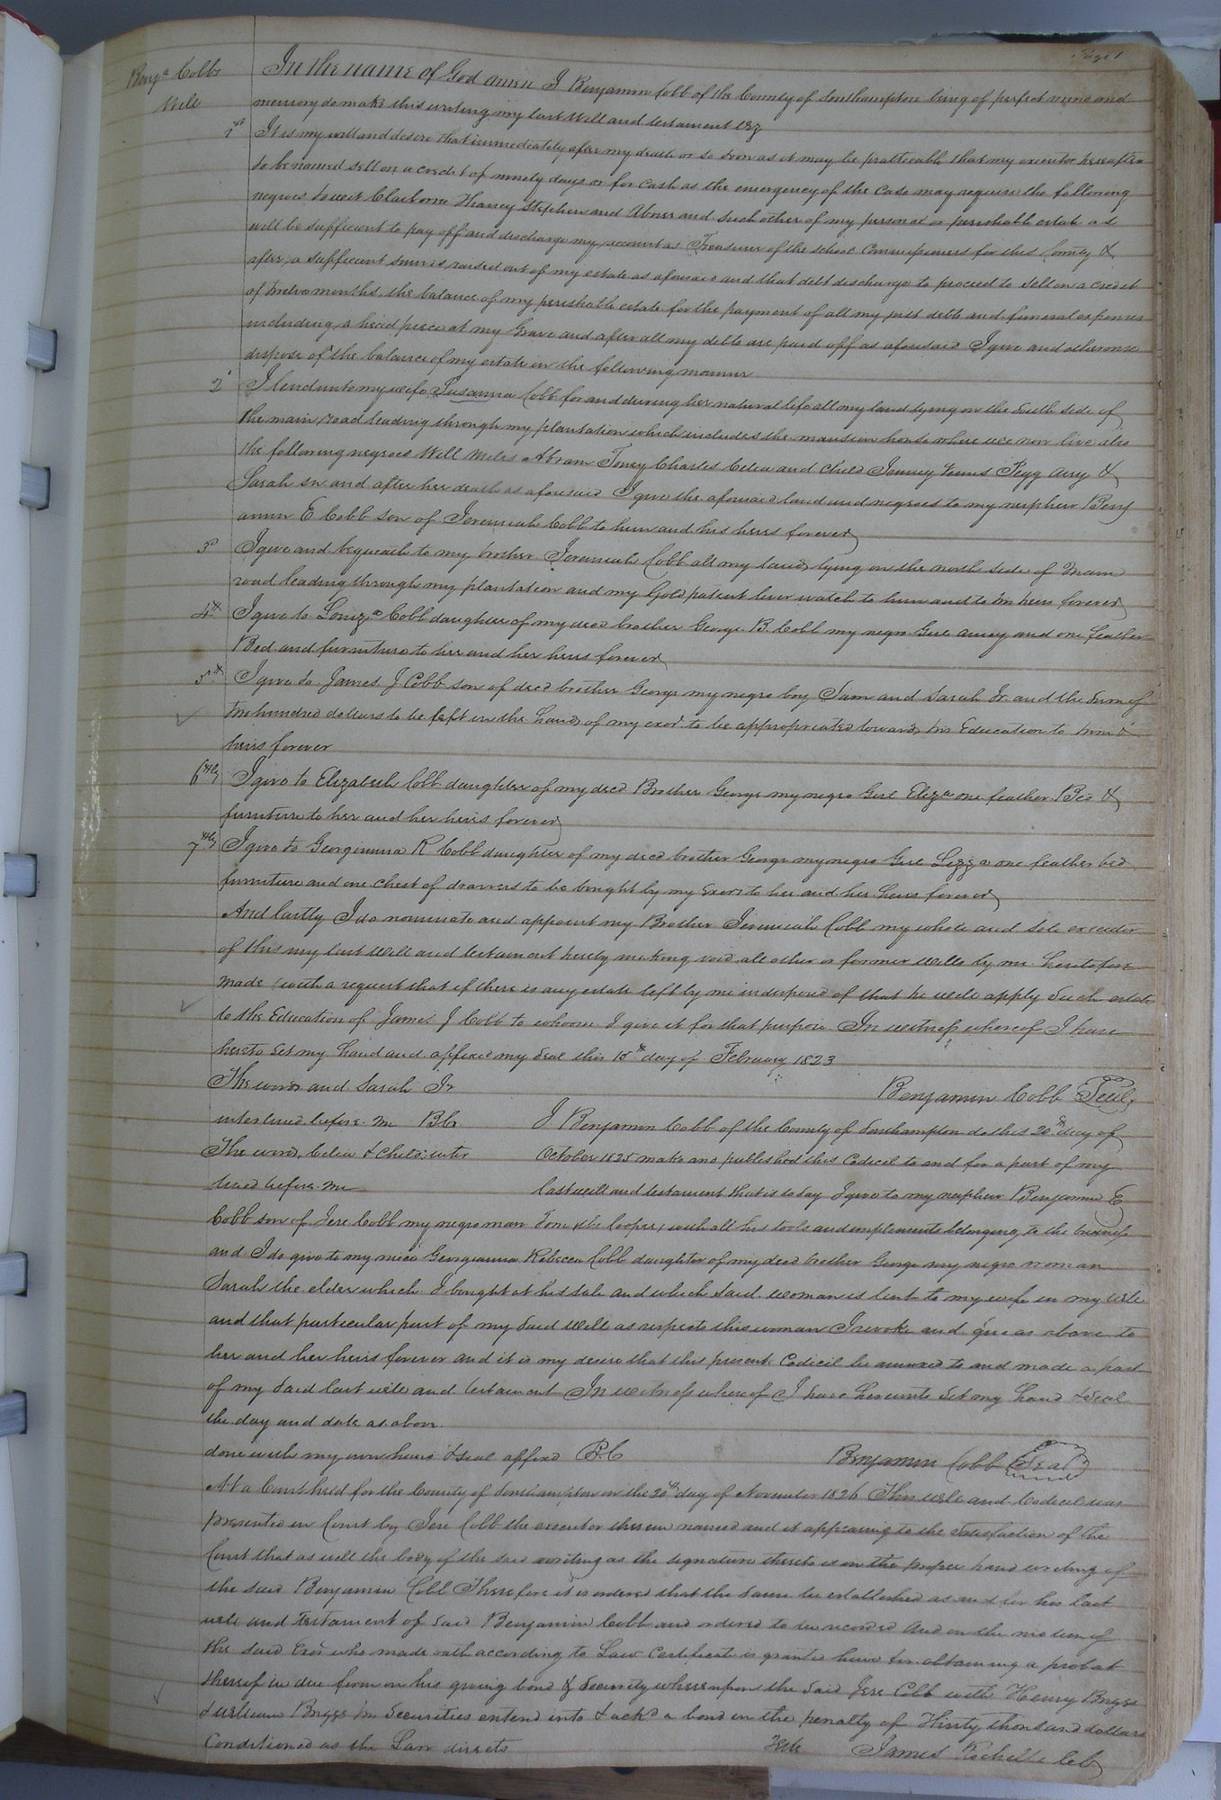 Page 1
Benja Cobbs
Will
In the name of God amen I Benjamin Cobb of the County of Southampton being of perfect mind and
memory do make this writing my last Will and testament Viz
1st It is my will and desire that immediately after my death or so soon as it may be practicable that my executor hereafter
to be named sell on a credit of ninety days or for cash as the emergency of the case may require the following
negroes to wit Claiborne Harvey Stephen and Abner and such other of my personal or perishable estate as
will be sufficient to pay off and discharge my account as Treasurer of the school commissioners for this County &
after a sufficient sum is raised out of my estate as aforesaid and that debt discharge to proceed to sell on a credit
of twelve months the balance of my perishable estate for the payment of all my just debts and funeral expenses
including a head piece at my Grave and after all my debts are paid off as aforesaid I give and otherwise
dispose of the balance of my estate in the following manner
2d I lend unto my wife Susanna Cobb for and during her natural life all my land lying on the South side of
the main road leading through my plantation which includes the mansion house where we now live also
the following negroes Will Miles Abram Toney Charles Celia and child Jenney Pegg Amy &
Sarah Sr and after her death as aforesaid I give the aforesaid land and negroes to my nephew Benj
amin E Cobb son of Jeremiah Cobb to him and his heirs forever
3d I give and bequeath to my brother Jeremiah Cobb all my lands lying on the north side of main
road leading through my plantation and my Gold patent lever watch to him and to his heirs forever
4th I give to Louiza Cobb daughter of my decd brother George B. Cobb my negro Girl and one feather
Bed and furniture to her and her heirs forever
5th I give to James J Cobb son of decd brother George my negro boy Sam and Sarah Jr. and the Sum of
hundred dollars to be left in the hands of my exor. to be appropriated towards his Education to him &
heirs forever
6thly I give to Elizabeth Cobb daughter of my decd Brother George my negro Girl Eliza one feather Bed &
furniture to her and her heirs forever
7thly I give to Georgianna R Cobb daughter of my decd brother George my negro Girl one feather bed
furniture and one chest of drawers to be bought by my Exor to her and her heirs forever
And lastly I do nominate and appoint my Brother Jeremiah Cobb my whole and sole executor
of this my last will and testament hereby making void all other or former wills by me heretofore
made (with a request that if there is any estate left by me indisposed of that he will apply such estate
to the Education of James J Cobb to whom I give it for that purpose In witness whereof I have
hereto set my hand and affixed my seal this day of February 1823
The words and Sarah Jr
Benjamin Cobb Seal
interlined before me BCo
I Benjamin Cobb of the County of Southampton do this 20th day of
The words Celia & child inter
October 1825 make and published this Codicil to and for a part of my
lined before me
last will and testament that is to say I give to my nephew Benjamin E
Cobb son of Jere Cobb my negro man Tom the Cooper, with all his tools and implements belonging to the business
and I do give to my niece Georgianna Rebecca Cobb daughter of my decd brother George my negro woman
Sarah the elder which I bought at his sale and which said woman is lent to my wife in my Will
and that particular part of my said Will as respects this woman I revoke and give as above to
her and her heirs forever and it is my desire that this present Codicil be annexed to and made a part
of my said last will and testament In witness whereof I have hereunto set my hand & seal
the day and date as above
done with my own hand & seal affixed B.C
Benjamin Cobb Seal
At a Court held for the County of Southampton on the 20th day of November 1826 This will and Codicil was
presented in Court by Jere Cobb the executor therein named and it appearing to the satisfaction of the
Court that as well the body of the said writing as the signature thereto is in the proper hand writing of
the said Benjamin Cobb Therefore it is ordered that the same be established as and for his last
will and testament of said Benjamin Cobb and ordered to be recorded And on the motion of
the said Exor who made oath according to Law Certificate is granted him for obtaining a probat
thereof in due form on his giving bond & Security whereupon the said Jere Cobb with Henry Briggs
& William Briggs his securities enterd into & ackd a bond in the penalty of Thirty thousand dollars
Conditioned as the Law directs
Teste James Rochelle Clk